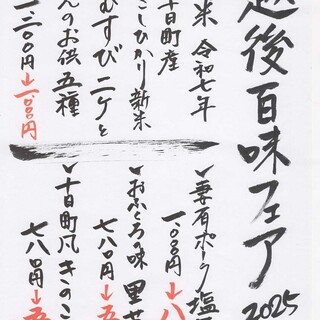 越後百味フェア 2025
米 令和七年
十日町産
こしひかり新米
むすび二ケと
んのお供五種
一三〇〇円→一〇〇〇円
・妻有ポーク塩
一〇〇〇円→八
・おふくろの味 里芋
七八〇円→五
・十日町風きのこ
七八〇円→五